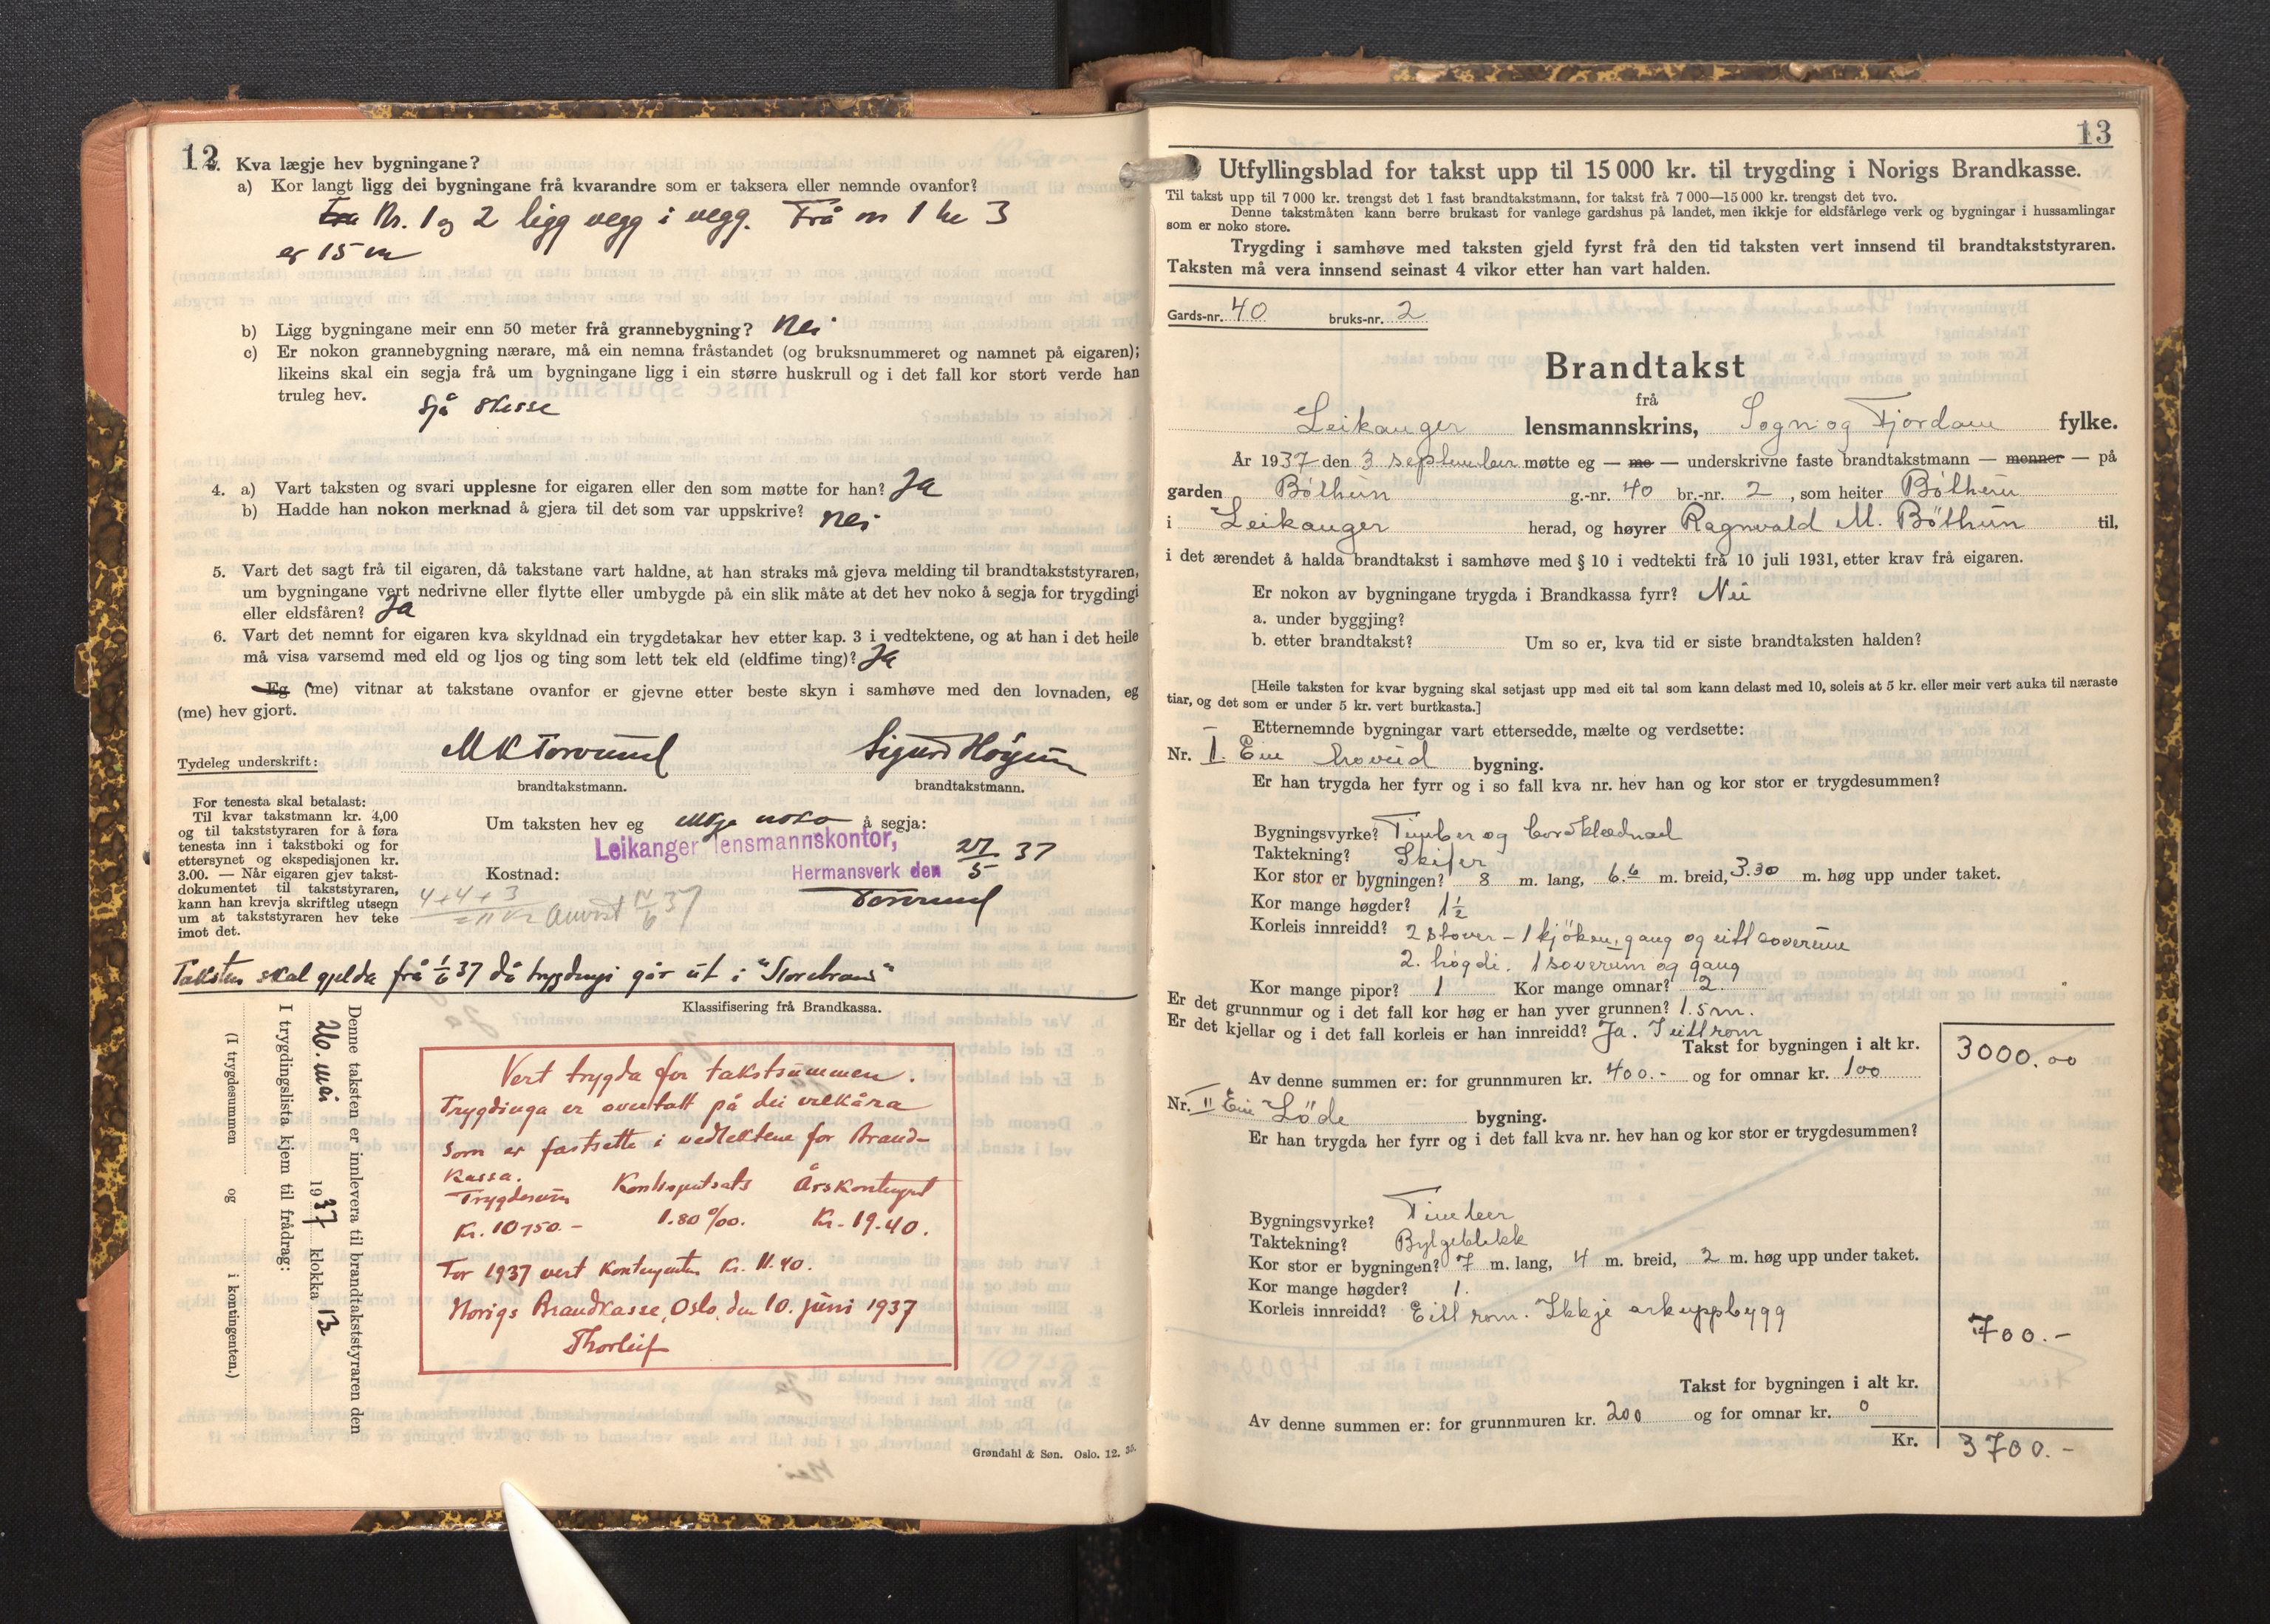 12
3. Kva lægje hev bygningane?
a) Kor langt ligg dei bygningane frå kvarandre som er taksera eller nemnde ovanfor?
Nr. 1 og 2 ligg vegg i vegg. Frå nr 1 til 3
er 15 m
b) Ligg bygningane meir enn 50 meter frå grannebygning? Nei
c) Er nokon grannebygning nærare, må ein nemna fråstandet (og bruksnummeret og namnet på eigaren);
likeins skal ein segja frå um bygningane ligg i ein større huskrull og i det fall kor stort verde han
truleg hev.
Sjå skisse
4. a) Vart taksten og svari upplesne for eigaren eller den som møtte for han? Ja
b) Hadde han nokon merknad å gjera til det som var uppskrive? Nei
5. Vart det sagt frå til eigaren, då takstane vart haldne, at han straks må gjeva melding til brandtakststyraren,
um bygningane vert nedrivne eller flytte eller umbygde på ein slik måte at det hev noko å segja for trygdingi
eller eldsfåren? Ja
6. Vart det nemnt for eigaren kva skyldnad ein trygdetakar hev etter kap. 3 i vedtektene, og at han i det heile
må visa varsemd med eld og ljos og ting som lett tek eld (eldfime ting)? Ja
Eg (me) vitnar at takstane ovanfor er gjevne etter beste skyn i samhøve med den lovnaden, eg
(me) hev gjort.
Tydeleg underskrift: MKTorvund Sigurd Høyum
brandtakstmann. brandtakstmann.
For tenesta skal betalast:
Til kvar takstmann kr. 4,00
og til takststyraren for å føra
tenesta inn i takstboki og for
ettersynet og ekspedisjonen kr.
3.00. — Når eigaren gjev takst-
dokumentet til takststyraren,
kann han krevja skriftleg utsegn
um at takststyraren hev teke
imot det.
Um taksten hev eg ikkje noko å segja:
Leikanger lensmannskontor,
Hermansverk den 27/5 37
Torvund
Kostnad:
4+4+3
= 11 kr
Taksten skal gjelda frå 1/6 37 då trygdingi går ut i "Storebrand"
Klassifisering frå Brandkassa.
Denne taksten er innlevera til brandtakststyraren den
26. mai 1937 klokka 13
I trygdingslista kjem til frådrag:
(I trygdesummen og i kontingenten.)
Vert trygda for takstsummen.
Trygdinga er overtatt på dei vilkåra
som er fastsette i vedtektene for Brand-
kassa.
Trygdesum Kontingentsats Årskontingent
Kr. 10750.- 1.80 ‰. Kr. 19.40.
For 1937 vert kontingenten Kr. 11.40.
Norigs Brandkasse, Oslo, den 10. juni 1937
Thorleif
Grøndahl & Søn. Oslo. 12. 35.
13
Utfyllingsblad for takst upp til 15 000 kr. til trygding i Norigs Brandkasse.
Til takst upp til 7 000 kr. trengst det 1 fast brandtakstmann, for takst frå 7 000—15 000 kr. trengst det tvo.
Denne takstmåten kann berre brukast for vanlege gardshus på landet, men ikkje for eldsfårlege verk og bygningar i hussamlingar
som er noko store.
Trygding i samhøve med taksten gjeld fyrst frå den tid taksten vert innsend til brandtakststyraren.
Taksten må vera innsend seinast 4 vikor etter han vart halden.
Gards-nr. 40 bruks-nr. 2
Brandtakst
frå
Leikanger lensmannskrins, Sogn og Fjordane fylke.
År 1937 den 3 september møtte eg — me — underskrivne faste brandtakstmann — menner — på
garden Bölhun g.-nr. 40 br.-nr. 2, som heiter Bölhun
i Leikanger herad, og høyrer Ragnvald M. Bölhun til,
i det ærendet å halda brandtakst i samhøve med § 10 i vedtekti frå 10 juli 1931, etter krav frå eigaren.
Er nokon av bygningane trygda i Brandkassa fyrr? Nei
a. under byggjing?
b. etter brandtakst? Um so er, kva tid er siste brandtaksten halden?
[Heile taksten for kvar bygning skal setjast upp med eit tal som kann delast med 10, soleis at 5 kr. eller meir vert auka til næraste
tiar, og det som er under 5 kr. vert burtkasta.]
Etternemnde bygningar vart ettersedde, mælte og verdsette:
Nr. I. Ein hovud bygning.
Er han trygda her fyrr og i so fall kva nr. hev han og kor stor er trygdesummen?
Bygningsvyrke? Timber og bordklædnad
Taktekning? Skifer
Kor stor er bygningen? 8 m. lang, 6.6 m. breid, 3.30 m. høg upp under taket.
Kor mange høgder? 1 1/2
Korleis innreidd? 2 stover - 1 kjöken, gang og eitt soverum
2. högdi. 1 soverum og gang
Kor mange pipor? 1 Kor mange omnar? 2
Er det grunnmur og i det fall kor høg er han yver grunnen? 1.5 m.
Er det kjellar og i det fall korleis er han innreidd? Ja. I eitt rom
Takst for bygningen i alt kr. 3000.00
Av denne summen er: for grunnmuren kr. 400.- og for omnar kr. 100
Nr. II Ein Löde bygning.
Er han trygda her fyrr og i det fall kva nr. hev han og kor stor er trygdesummen?
Bygningsvyrke? Timber
Taktekning? Bylgeblikk
Kor stor er bygningen? 7 m. lang, 4 m. breid, 2 m. høg upp under taket.
Kor mange høgder? 1.
Korleis innreidd? Eitt rom. Ikkje arkuppbygg
700.-
Takst for bygningen i alt kr.
Av denne summen er: for grunnmuren kr. 200 og for omnar kr. 0
Kr. 3700.-